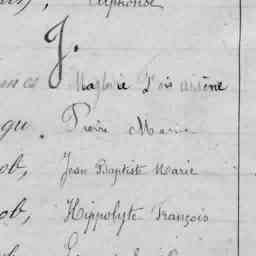 Alphonse
J.
Magloire Fois Arsène
gu. Pierre Marie
ob, Jean Baptiste Marie
ob, Hippolyte François